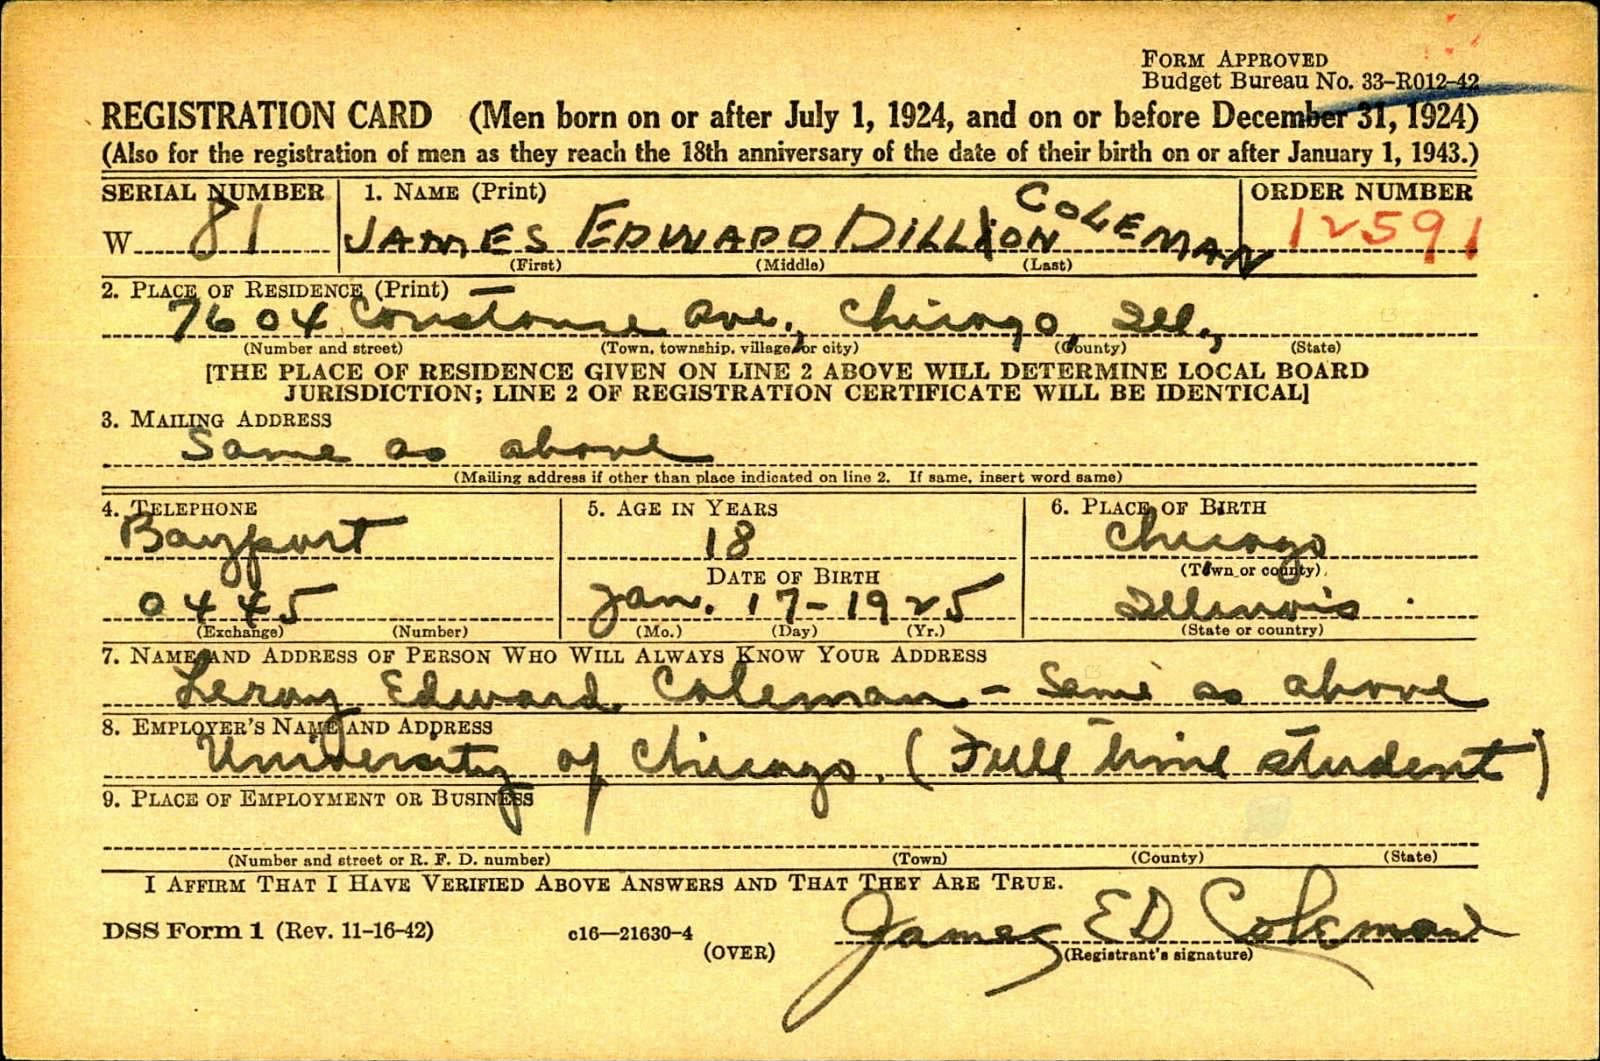 FORM APPROVED
Budget Bureau No. 33-R012-42
REGISTRATION CARD (Men born on or after July 1, 1924, and on or before December 31, 1924)
(Also for the registration of men as they reach the 18th anniversary of the date of their birth on or after January 1, 1943.)
SERIAL NUMBER 1. NAME (Print) ORDER NUMBER
W 81 JAMES EDWARD DILLION COLEMAN 12591
(First) (Middle) (Last)
2. PLACE OF RESIDENCE (Print)
7604 Constance Ave., Chicago, Ill.,
(Number and street) (Town, township, village, or city) (County) (State)
[THE PLACE OF RESIDENCE GIVEN ON LINE 2 ABOVE WILL DETERMINE LOCAL BOARD
JURISDICTION; LINE 2 OF REGISTRATION CERTIFICATE WILL BE IDENTICAL]
3. MAILING ADDRESS
Same as above
(Mailing address if other than place indicated on line 2. If same, insert word same)
4. TELEPHONE 5. AGE IN YEARS 6. PLACE OF BIRTH
Bayport 18 Chicago
DATE OF BIRTH (Town or county)
0445 Jan. 17-1925 Illinois
(Exchange) (Number) (Mo.) (Day) (Yr.) (State or country)
7. NAME AND ADDRESS OF PERSON WHO WILL ALWAYS KNOW YOUR ADDRESS
Leroy Edward Coleman - Same as above
8. EMPLOYER'S NAME AND ADDRESS
University of Chicago. (Full time student)
9. PLACE OF EMPLOYMENT OR BUSINESS
(Number and street or R. F. D. number) (Town) (County) (State)
I AFFIRM THAT I HAVE VERIFIED ABOVE ANSWERS AND THAT THEY ARE TRUE.
DSS Form 1 (Rev. 11-16-42) c16—21630-4 James ED Coleman
(OVER) (Registrant's signature)